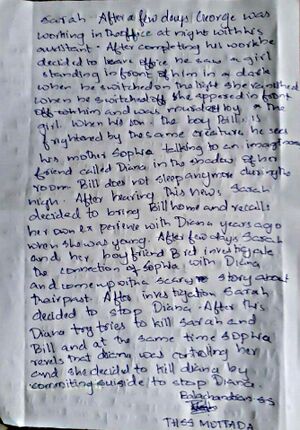 Sarah. After a few days George was
working in the office at night with his
assistant. After completing his work he
decided to leave office he saw a girl
standing in front of him in a dark
when he switched on the light she vanished
when he switched off she appeared in front
of him and was murdered by the
girl. When his son the boy Bill is
frightened by the same creature he sees
his mother Sophia talking to an imaginary
friend called Diana in the shadow of her
room. Bill does not sleep anymore during the
nigh. After hearing this news Sarah
decided to bring Bill home and recalls
her own experience with Diana years ago
when she was young. After few days Sarah
and her boyfriend Bret investigate
the connection of Sophia with Diana
and come up with a scary story about
their past. After investigation Sarah
decided to stop Diana. After this
Diana try tries to kill Sarah and
Bill and at the same time Sophia
revels that diana was controlling her
and she decided to kill diana by
commiting suicide to stop Diana.
Balachandran SS
THSS MUTTADA